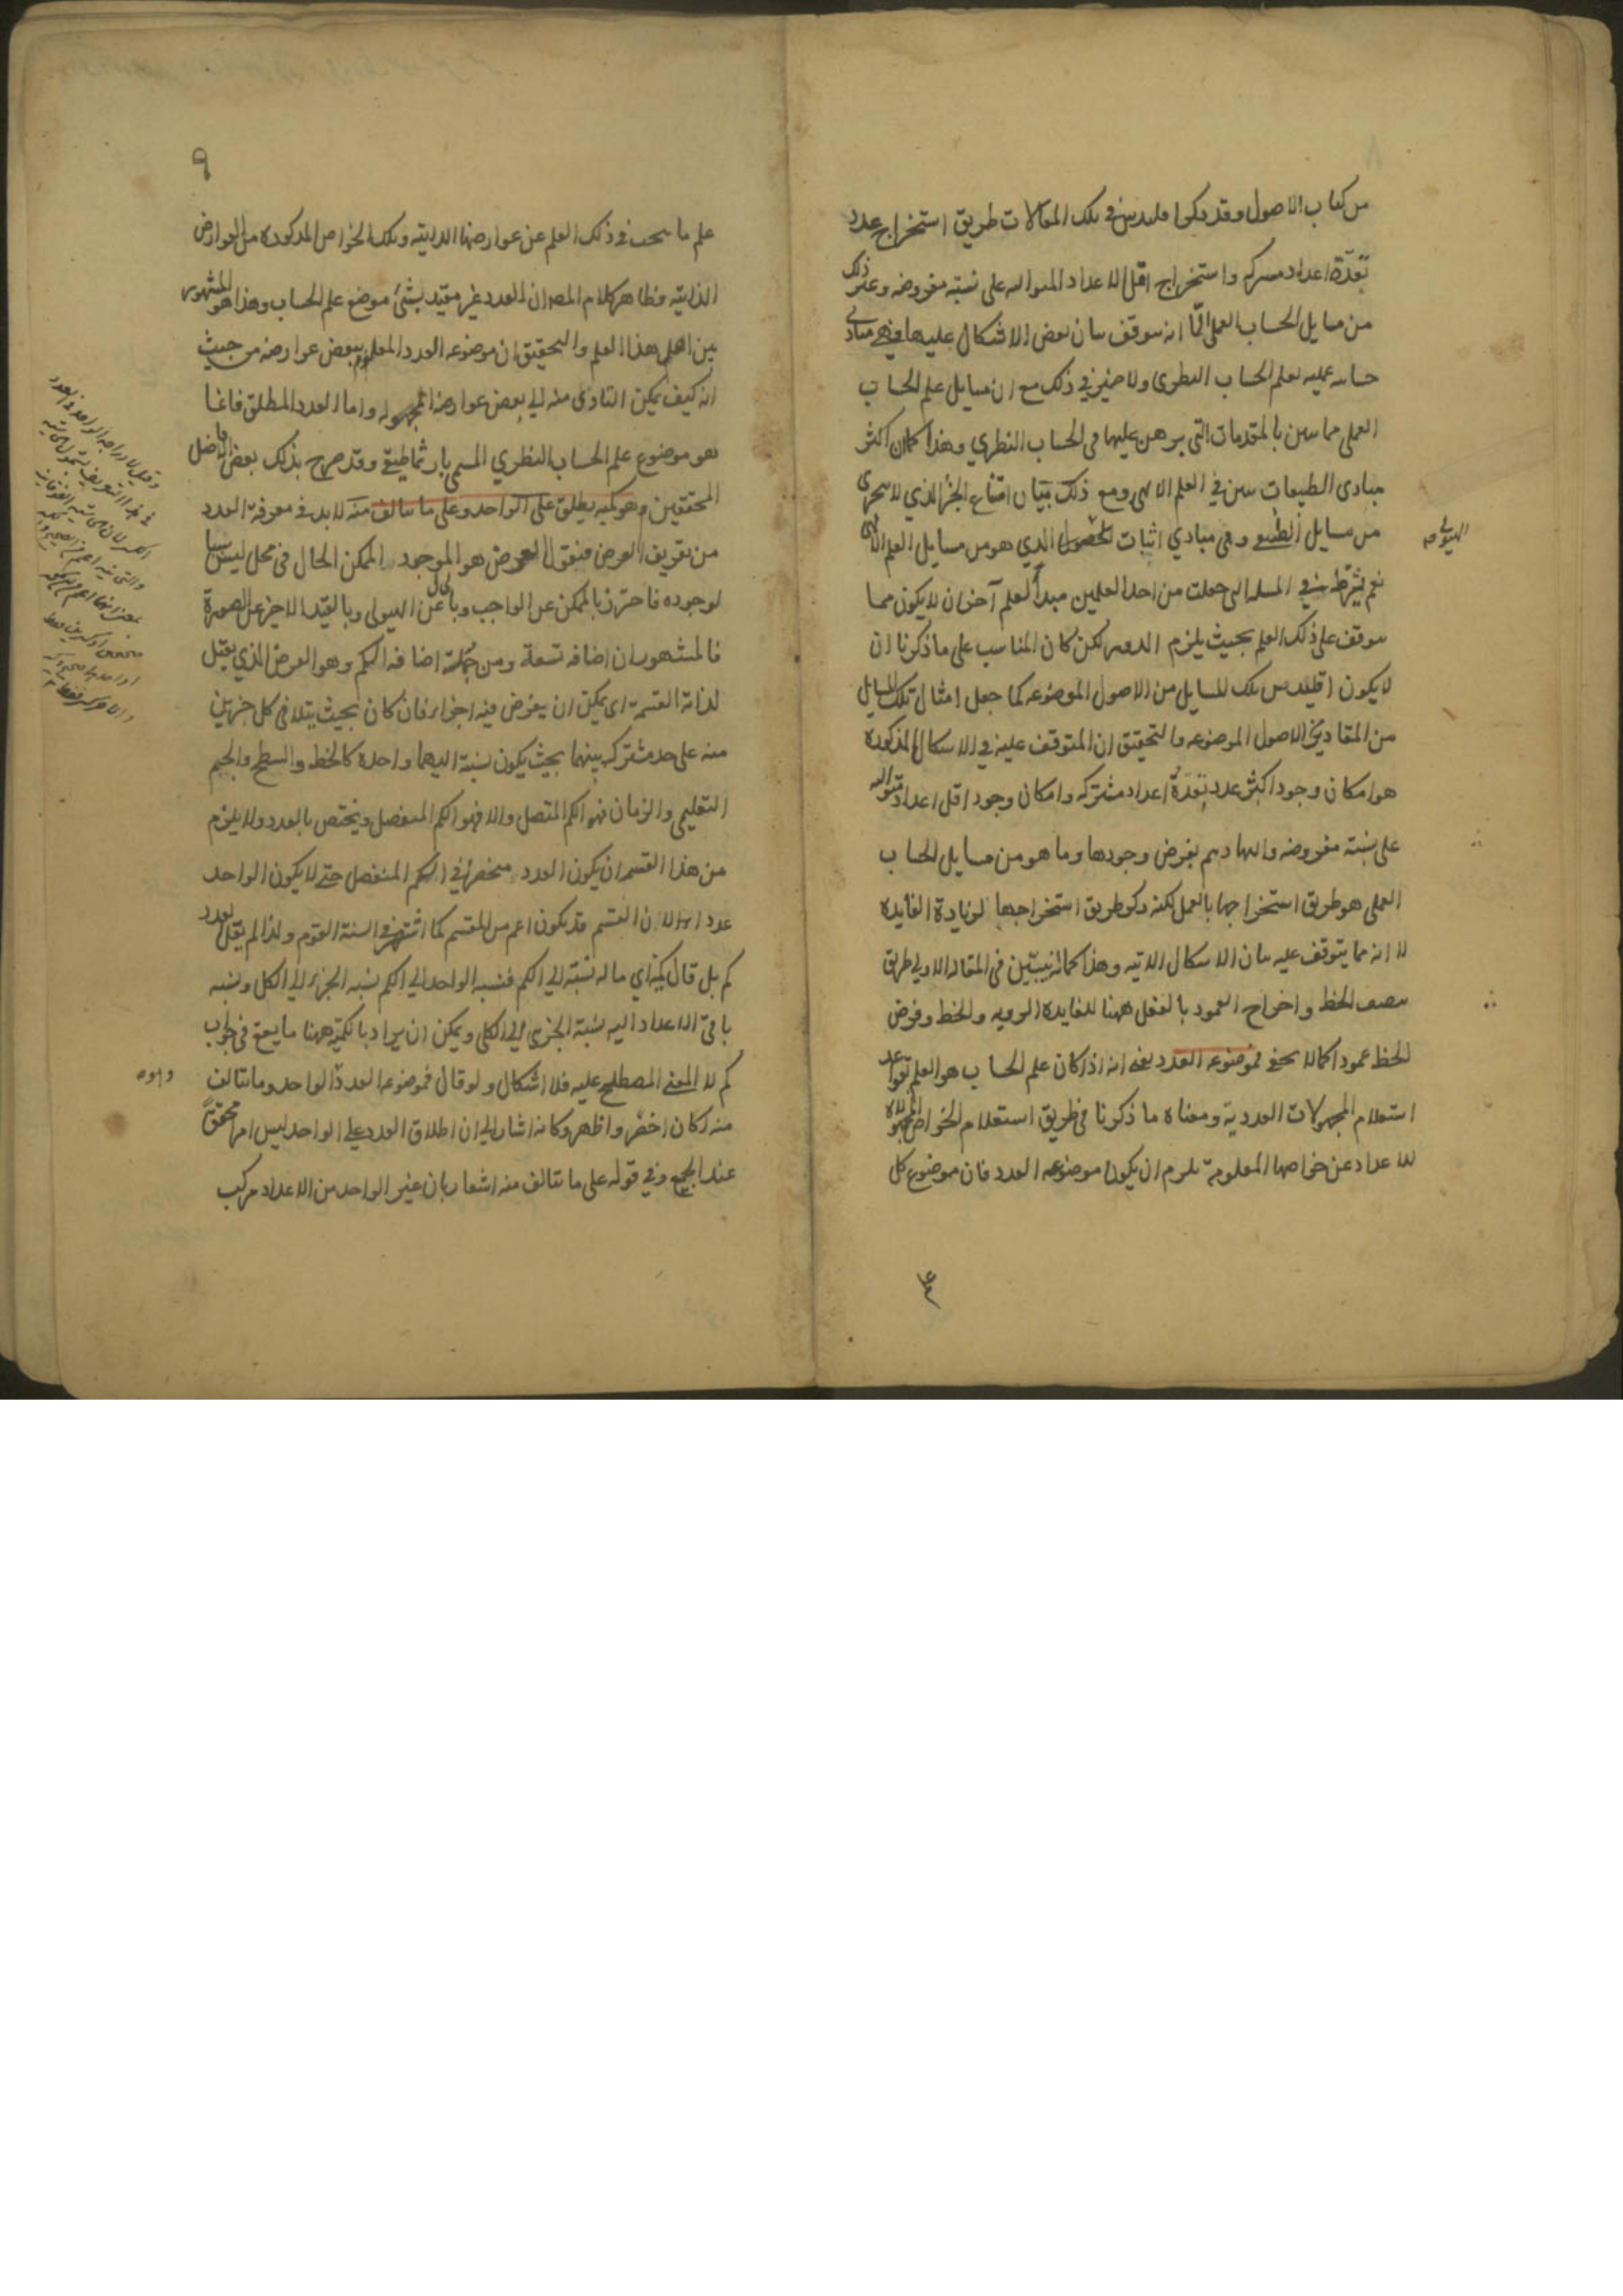 من كتاب الاصول وقد ذكر اقليدس في تلك المقالات طريق استخراج عدد
تعدّة اعداد مشتركه واستخراج اقل الاعداد المتواليه على نسبة مفروضه وغير ذلك
من مسايل الحساب العملي انه يتوقف بيان بعض الاشكال عليها فهي مبادي
حسابيه عمليه لعلم الحساب النظري ولا ضير في ذلك مع ان مسايل علم الحساب
العملي مما يبين بالمقدمات التي يبرهن عليها في الحساب النظري وهذا كما ان اكثر
مبادي الطبيعيات يبين في العلم الالهي ومع ذلك بيان امتناع الجزء الذي لا يتجزى
من مسايل الطبيعي وهي مبادي اثبات الذي هو من مسايل العلم الالهي
نعم يشترط في المسئله التي جعلت من احد العلمين مبدأ لعلم آخر ان لا يكون مما
يتوقف على ذلك العلم بحيث يلزم الدور لكن كان المناسب على ما ذكرنا ان
لا يكون اقليدس تلك المسايل من الاصول الموضوعه كما جعل امثال تلك المسايل
من المقادير في الاصول الموضوعه والتحقيق ان المتوقف عليه في الاشكال المذكوره
هو امكان وجود اكثر عدد تعدّه اعداد مشتركه وامكان وجود اقل اعداد متواليه
على نسبة مفروضه والهادم بفرض وجودها وما هو من مسايل الحساب
العملي هو طريق استخراجها بالعمل لكنه ذكر طريق استخراجها لزيادة الفايده
لا انه مما يتوقف عليه بيان الاشكال الاتيه وهذا كما انه يبين في المقاله الاولي طريق
تنصيف الخط واخراج العمود بالفعل ههنا للفايده والخط وفرض
الخط عمودا كما لا يخفى فموضوعه العدد يعني انه اذا كان علم الحساب هو العلم بقواعد
استعلام المجهولات العددية ومعناه ما ذكرنا في طريق استعلام الخواص المجهولة
للاعداد عن خواصها المعلومة يلزم ان يكون موضوعه العدد فان موضوع كل
الهيولى صه
٩
علم ما يبحث في ذلك العلم عن عوارضها الذاتيه وتلك الخواص المذكوره من العوارض
الذاتيه فظاهر كلام المص ان العدد غير مقيد بشئ موضوع علم الحساب وهذا هو المشهور
بين اهل هذا العلم والتحقيق ان موضوعه العدد المعلوم ببعض عوارضه من حيث
انه كيف يمكن التادى منه الى بعض عوارضه المجهوله واما العدد المطلق فانما
هو موضوع علم الحساب النظري المسمى بارثماطيقي وقد صرح بذلك بعض افاضل
المحققين وهو كمية يطلق على الواحد وعلى ما يتالف منه لا بد في معرفة العدد
من تعريف العرض فنقول العرض هو الموجود الممكن الحال في محل ليس سببا
لوجوده فاحترز بالممكن عن الواجب وبالحال عن الهيولى وبالقيد الاخير عن الصورة
فالمشهور ان اضافه تسعة ومن جملة اضافه الكم وهو العرض الذي يقبل
لذاته القسمة اي يمكن ان يفرض فيه اجزاء فان كان بحيث يتلاقى كل جزئين
منه على حد مشترك بينهما بحيث يكون نسبته اليهما واحدة كالخط والسطح والجسم
التعليمي والزمان فهو الكم المتصل والا فهو الكم المنفصل ويختص بالعدد ولا يلزم
من هذا القسم ان يكون العدد منحصرا في الكم المنفصل حتى لا يكون الواحد
عددا لان القسم قد يكون اعم من المقسم كما اشتهر في السنة القوم ولذا لم يقل العدد
كم بل قال كمية اي ما له نسبة الى الكم فنسبه الواحد الى الكم نسبه الجزء الى الكل ونسبه
باقي الاعداد اليه نسبة الجزئي الى الكلي ويمكن ان يراد بالكمية ههنا ما يقع في جواب
كم لا المعنى المصطلح عليه فلا اشكال ولو قال فموضوعه العدد الواحد وما يتالف
منه لكان اخصر واظهر وكانه اشار الى ان اطلاق العدد على الواحد ليس امرا محققا
عند الجميع وفي قوله على ما يتالف منه اشعار بان غير الواحد من الاعداد مركب